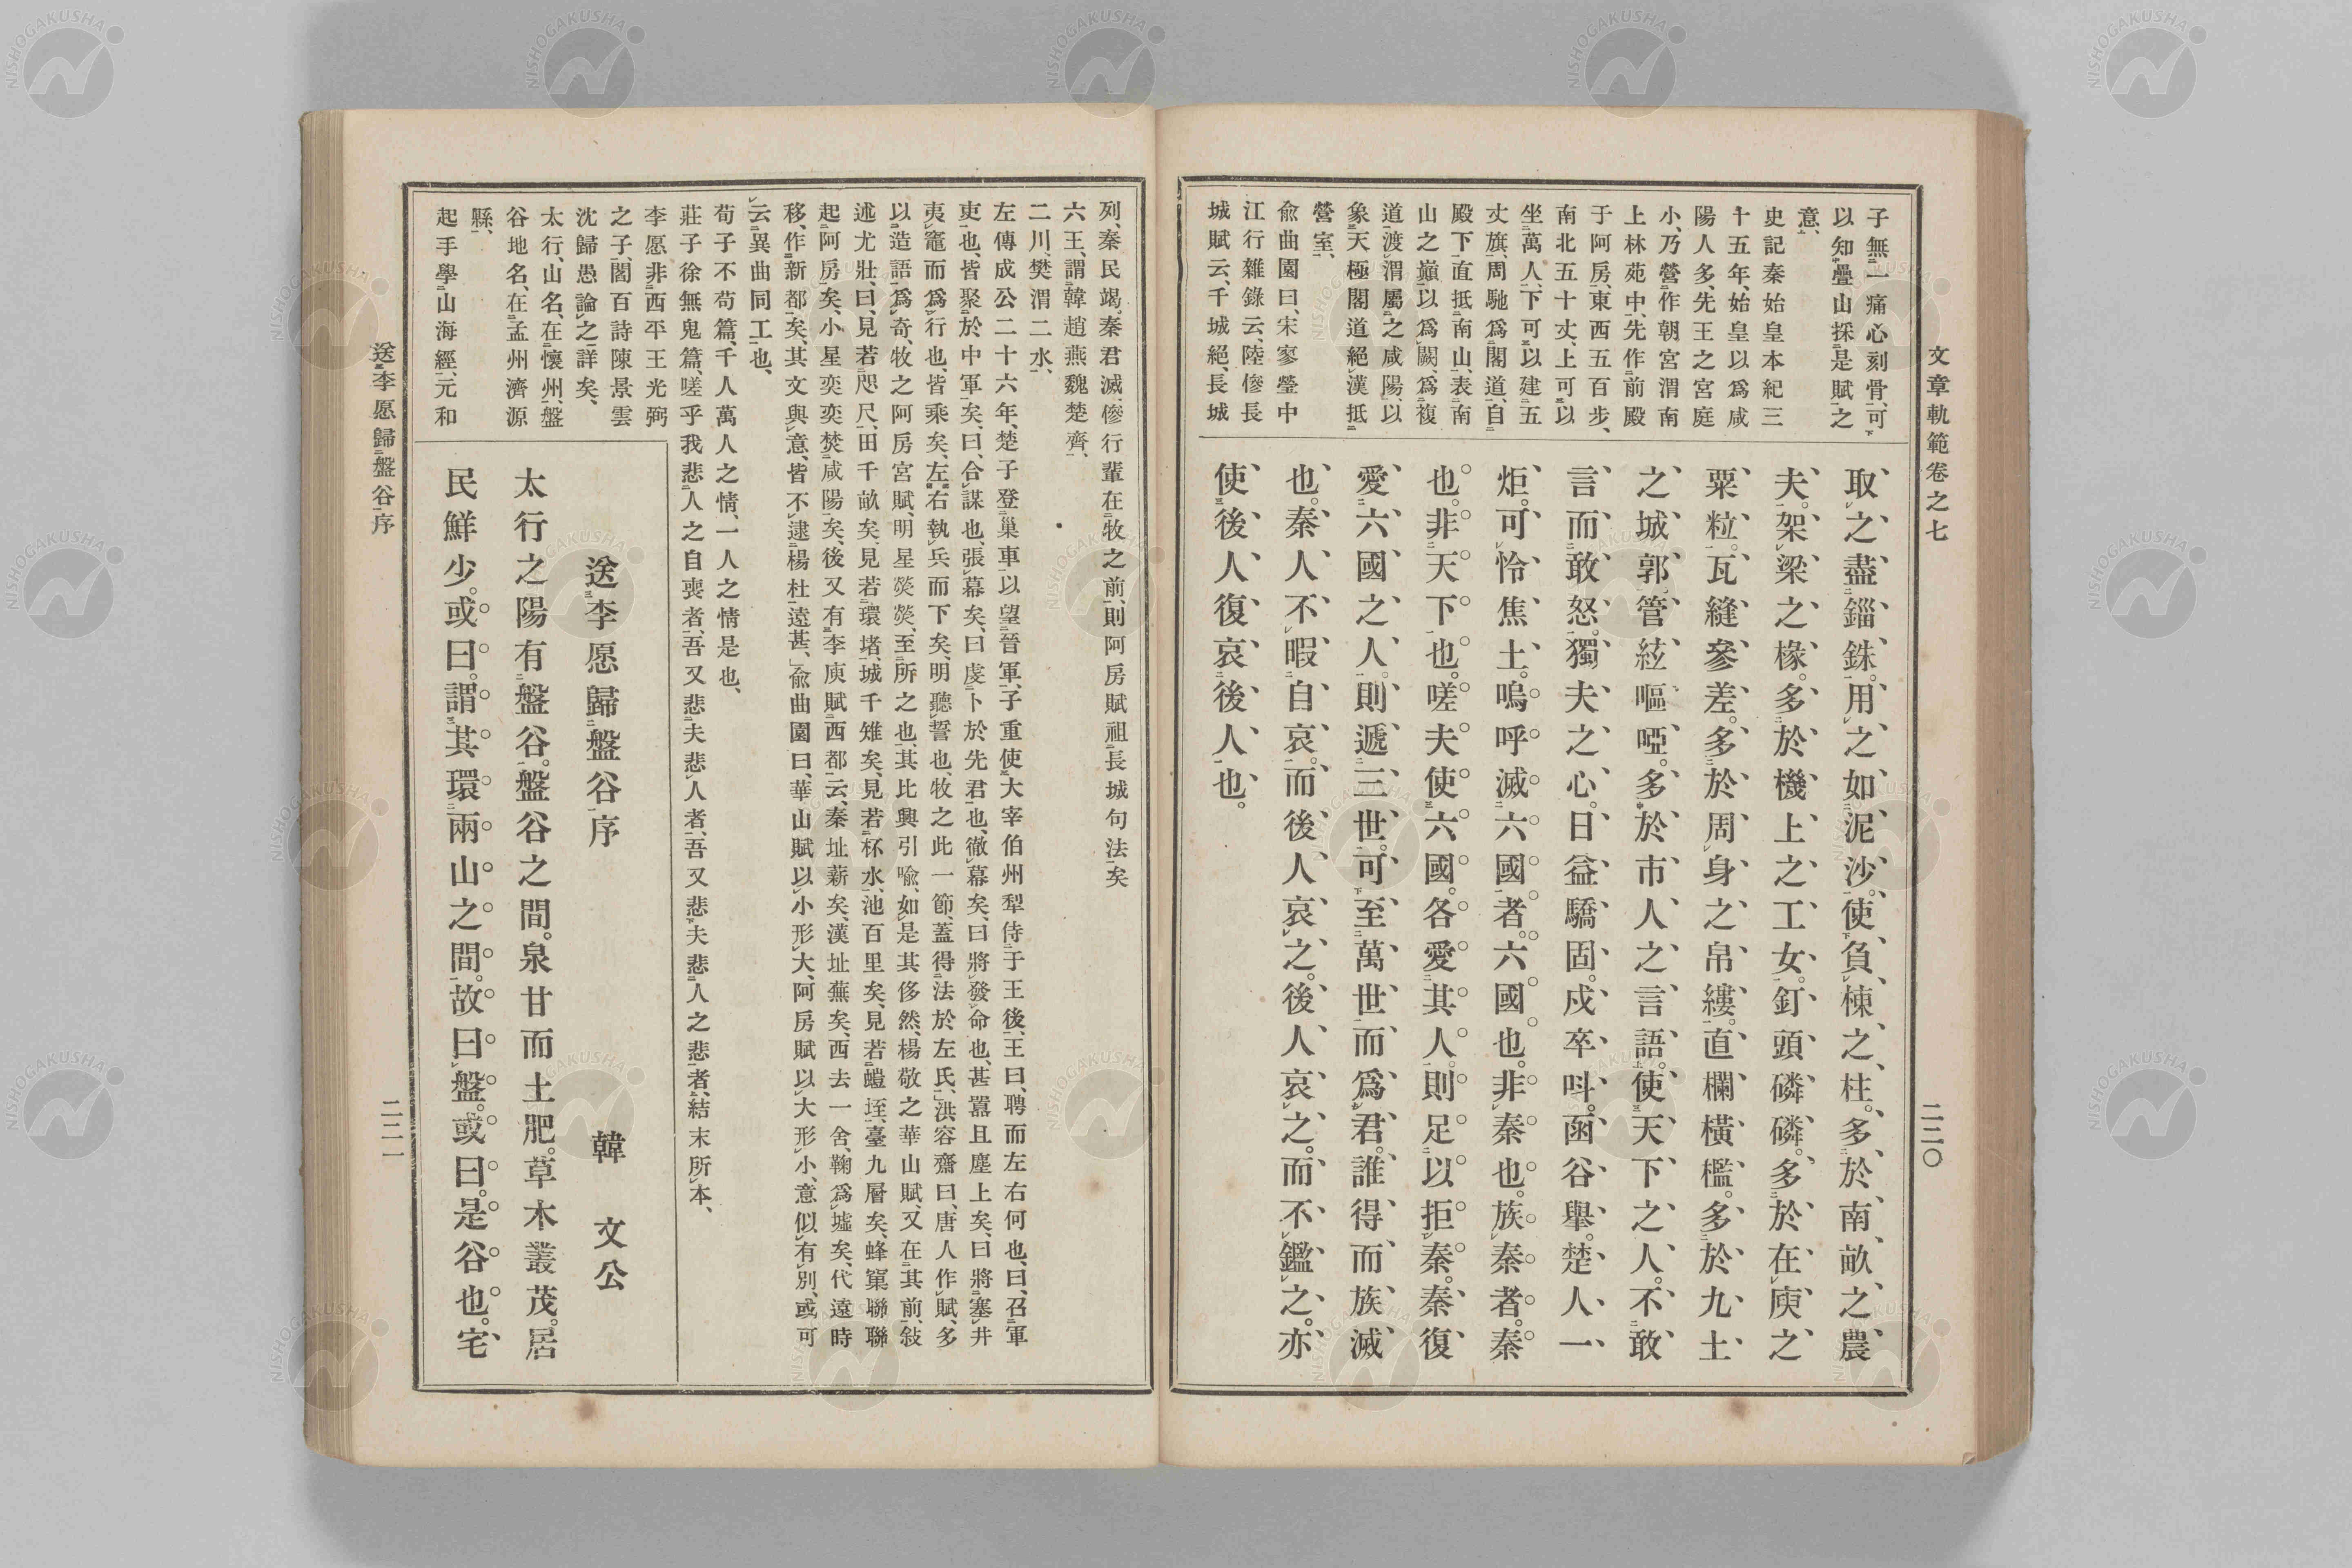 文章軌範卷之七
二二〇
子無一痛心刻骨、可
以知疊山採是賦之
意、
史記秦始皇本紀三
十五年、始皇以爲咸
陽人多、先王之宮庭
小、乃營作朝宮渭南
上林苑中、先作前殿
于阿房、東西五百步、
南北五十丈、上可以
坐萬人、下可以建五
丈旗、周馳爲閣道、自
殿下直抵南山、表南
山之巓以爲闕、爲複
道渡渭屬之咸陽、以
象天極閣道絕漢抵
營室、
兪曲園曰、宋寥瑩中
江行雜錄云、陸傪長
城賦云、千城絕、長城
取之盡錙銖。用之如泥沙。使負棟之柱。多於南畝之農
夫。架梁之椽。多於機上之工女。釘頭磷磷。多於在庾之
粟粒。瓦縫參差。多於周身之帛縷。直欄橫檻。多於九土
之城郭。管絃嘔啞。多於市人之言語。使天下之人。不敢
言而敢怒。獨夫之心。日益驕固。戍卒呌。函谷舉。楚人一
炬。可怜焦土。嗚呼滅六國者。六國也。非秦也。族秦者。秦
也。非天下也。嗟夫使六國。各愛其人。則足以拒秦。秦復
愛六國之人。則遞三世。可至萬世而爲君。誰得而族滅
也。秦人不暇自哀。而後人哀之。後人哀之。而不鑑之。亦
使後人復哀後人也。
列、秦民竭。秦君滅、傪行輩在牧之前、則阿房賦祖長城句法矣
六王、謂韓趙燕魏楚齊、
二川、樊渭二水、
左傳成公二十六年、楚子登巢車以望晉軍、子重使大宰伯州犁侍于王後、王曰、聘而左右何也、曰、召軍
吏也、皆聚於中軍矣、曰、合謀也、張幕矣、曰虔卜於先君也、徹幕矣、曰將發命也、甚囂且塵上矣、曰將塞井
夷竈而爲行也、皆乘矣、左右執兵而下矣、明聽誓也、牧之此一節、蓋得法於左氏、」洪容齋曰、唐人作賦、多
以造語爲奇、牧之阿房宮賦、明星熒熒、至所之也、其比興引喩、如是其侈然、楊敬之華山賦、又在其前、敍
述尤壯、曰、見若咫尺、田千畝矣、見若環堵、城千雉矣、見若杯水、池百里矣、見若螘垤、臺九層矣、蜂窠聯聯
起阿房矣、小星奕奕焚咸陽矣、後又有李庾賦西都云、秦址薪矣、漢址蕪矣、西去一舍、鞠爲墟矣、代遠時
移、作新都矣、其文與意、皆不逮楊杜遠甚、」兪曲園曰、華山賦以小形大、阿房賦以大形小、意似有別、或可
云異曲同工也、
荀子不苟篇、千人萬人之情、一人之情是也、
莊子徐無鬼篇、嗟乎我悲人之自喪者、吾又悲夫悲人者、吾又悲夫悲人之悲者、結末所本、
李愿非西平王光弼
之子、閻百詩陳景雲
沈歸愚論之詳矣、
太行、山名、在懷州、盤
谷地名、在孟州濟源
縣、
起手學山海經、元和
送李愿歸盤谷序　　韓文公
太行之陽有盤谷。盤谷之間。泉甘而土肥。草木叢茂。居
民鮮少。或曰。謂其環兩山之間。故曰盤。或曰。是谷也。宅
送李愿歸盤谷序
二二一
NISHOGAKUSHA